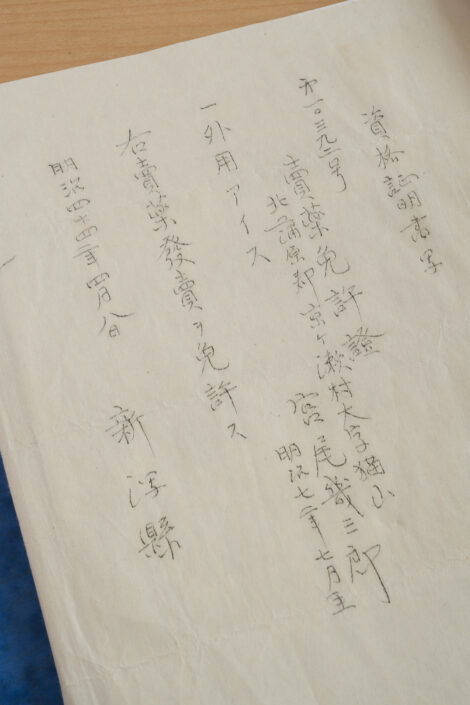 資格証明書写
第一〇三九二号
賣薬免許證
北蒲原郡京ヶ瀬村大字猫山
宮尾幾三郎
明治七年七月生
一外用アイス
右賣薬發賣ヲ免許ス
明治四十四年四月八日
新潟縣